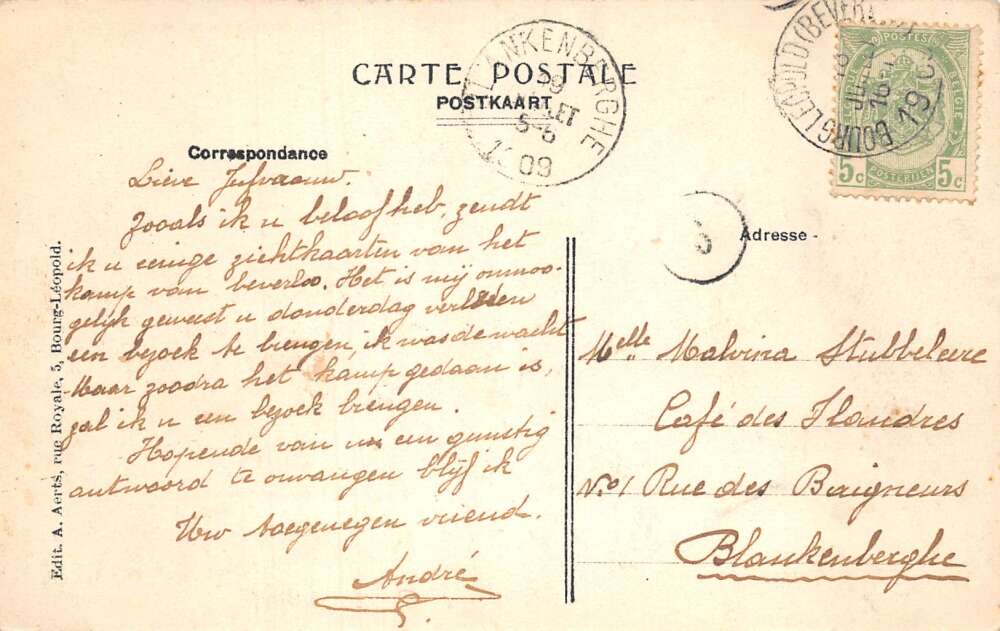 CARTE POSTALE
POSTKAART
BLANKENBERGHE
5-6
1909
BOURG LEOPOLD (BEVER
16
POSTES
BELGIQUE
BELGIË
POSTERIJEN
5c 5c
Correspondance
Lieve Jufvrouw.
Zooals ik u beloof heb, zendt
ik u eenige zichtkaarten van het
kamp van beverloo. Het is mij onmoo-
gelijk geweest u donderdag verleden
een bezoek te brengen, ik was de wacht
Maar zoodra het kamp gedaan is,
zal ik u een bezoek brengen.
Hopende van u een gunstig
antwoord te onvangen blijf ik
Uw toegenegen vriend.
André
Edit. A. Aerts, rue Royale, 5, Bourg-Léopold.
Adresse -
Melle Malvina Stubbeleere
Café des Flandres
No 1 Rue des Baigneurs
Blankenberghe